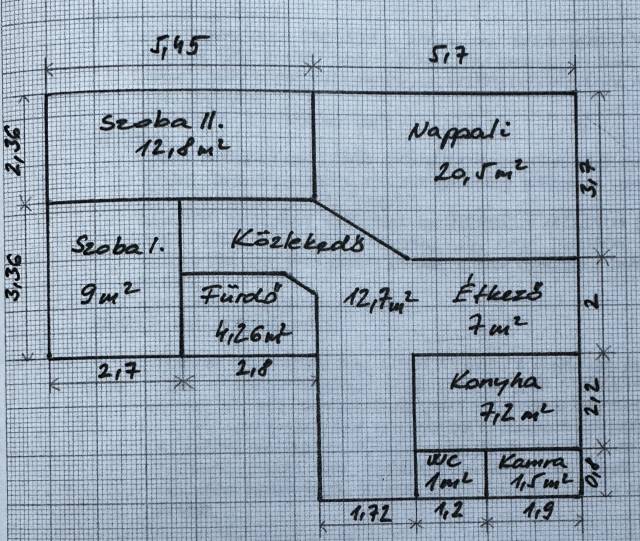 5,45
5,7
2,36
Szoba II.
12,8 m²
Nappali
20,5 m²
3,7
3,36
Szoba I.
9 m²
Közlekedő
12,7 m²
Fürdő
4,26 m²
Étkező
7 m²
2
2,7
2,8
Konyha
7,2 m²
2,2
WC
1 m²
Kamra
1,5 m²
0,8
1,72
1,2
1,9